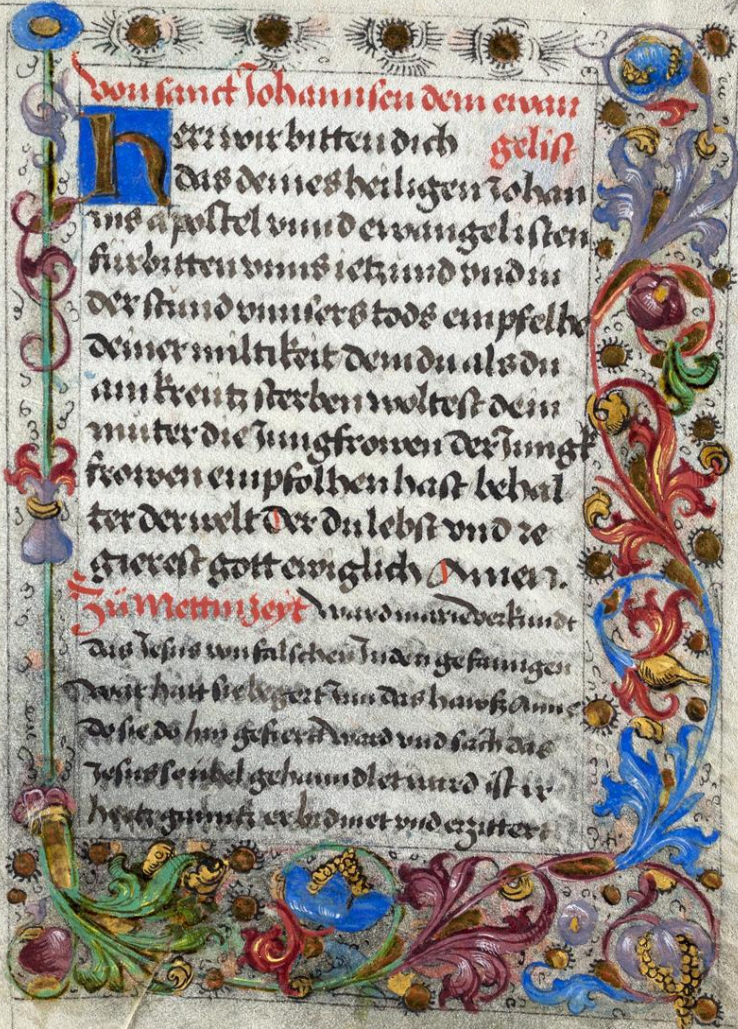 von sanct Johannsen dem ewan
gelist
herr wir bitten dich
das deines heiligen Johan
ns apostel vnnd ewangelisten
fürbitten vnns ietzund vnd in
der stund vnnsers tods empfelhe
deiner miltikeit dem du als du
am kreutz sterben woltest dein
muter die Jungfrowen der Jungk
frowen empfolhen hast behal
ter der welt Der du lebst vnd re
gierest gott ewiglich Amen.
Zu Mettinzeyt ward marie verkundt
das Jesus von falschen Juden gefanngen
wár hatt sie begert Inn das hawsz Anne
do sie do hin gefiert ward vnd sách das
Jesus so übel gehanndlet ward ist ir
hertz erbidmet vnd erzittert